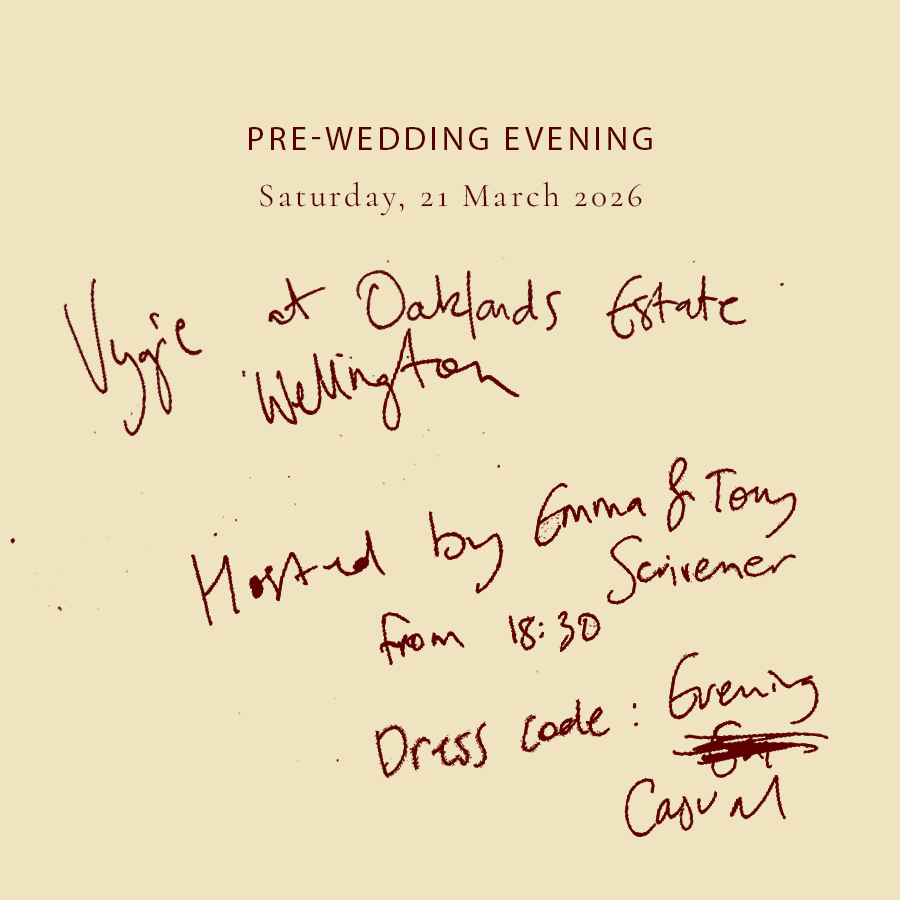 PRE-WEDDING EVENING
Saturday, 21 March 2026
Vygie at Oaklands Estate
Wellington
Hosted by Emma & Tony
Scrivener
from 18:30
Dress code: Evening
Casual